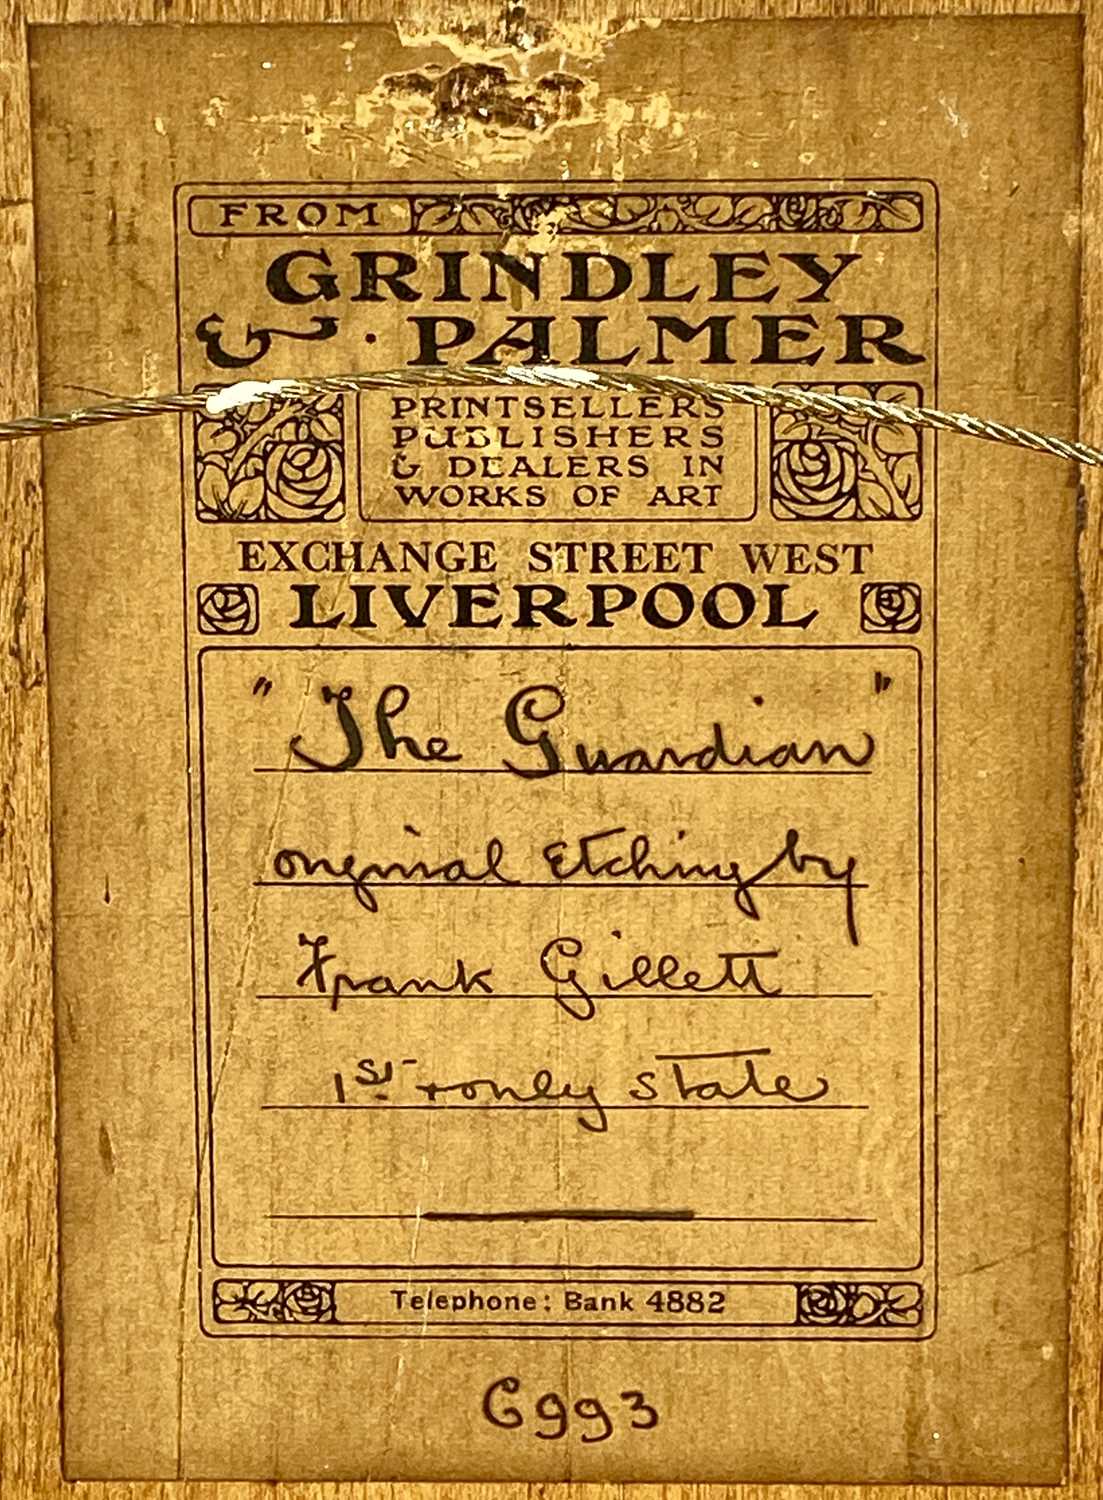 FROM
GRINDLEY
& · PALMER
PRINTSELLERS
PUBLISHERS
& DEALERS IN
WORKS OF ART
EXCHANGE STREET WEST
LIVERPOOL
"The Guardian"
original Etching by
Frank Gillett
1st + only state
Telephone: Bank 4882
6993